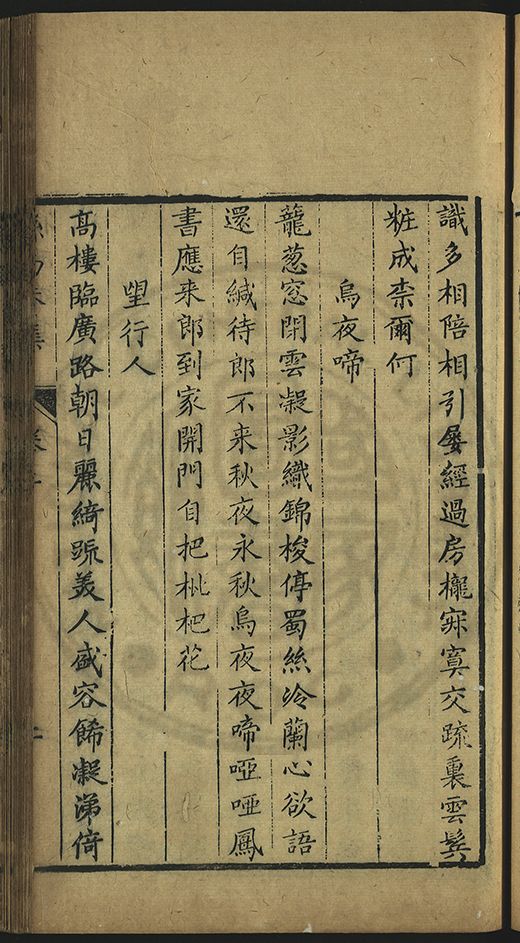 識多相陪相引屡經過房櫳寂寞交疏裏雲鬂
粧成柰爾何
烏夜啼
龍葱窓閉雲凝影織錦梭停蜀絲冷蘭心欲語
還自緘待郎不来秋夜永秋烏夜夜啼啞啞鳳
書應来郎到家開門自把枇杷花
望行人
高樓臨廣路朝日麗綺䟽美人盛容餙凝涕倚